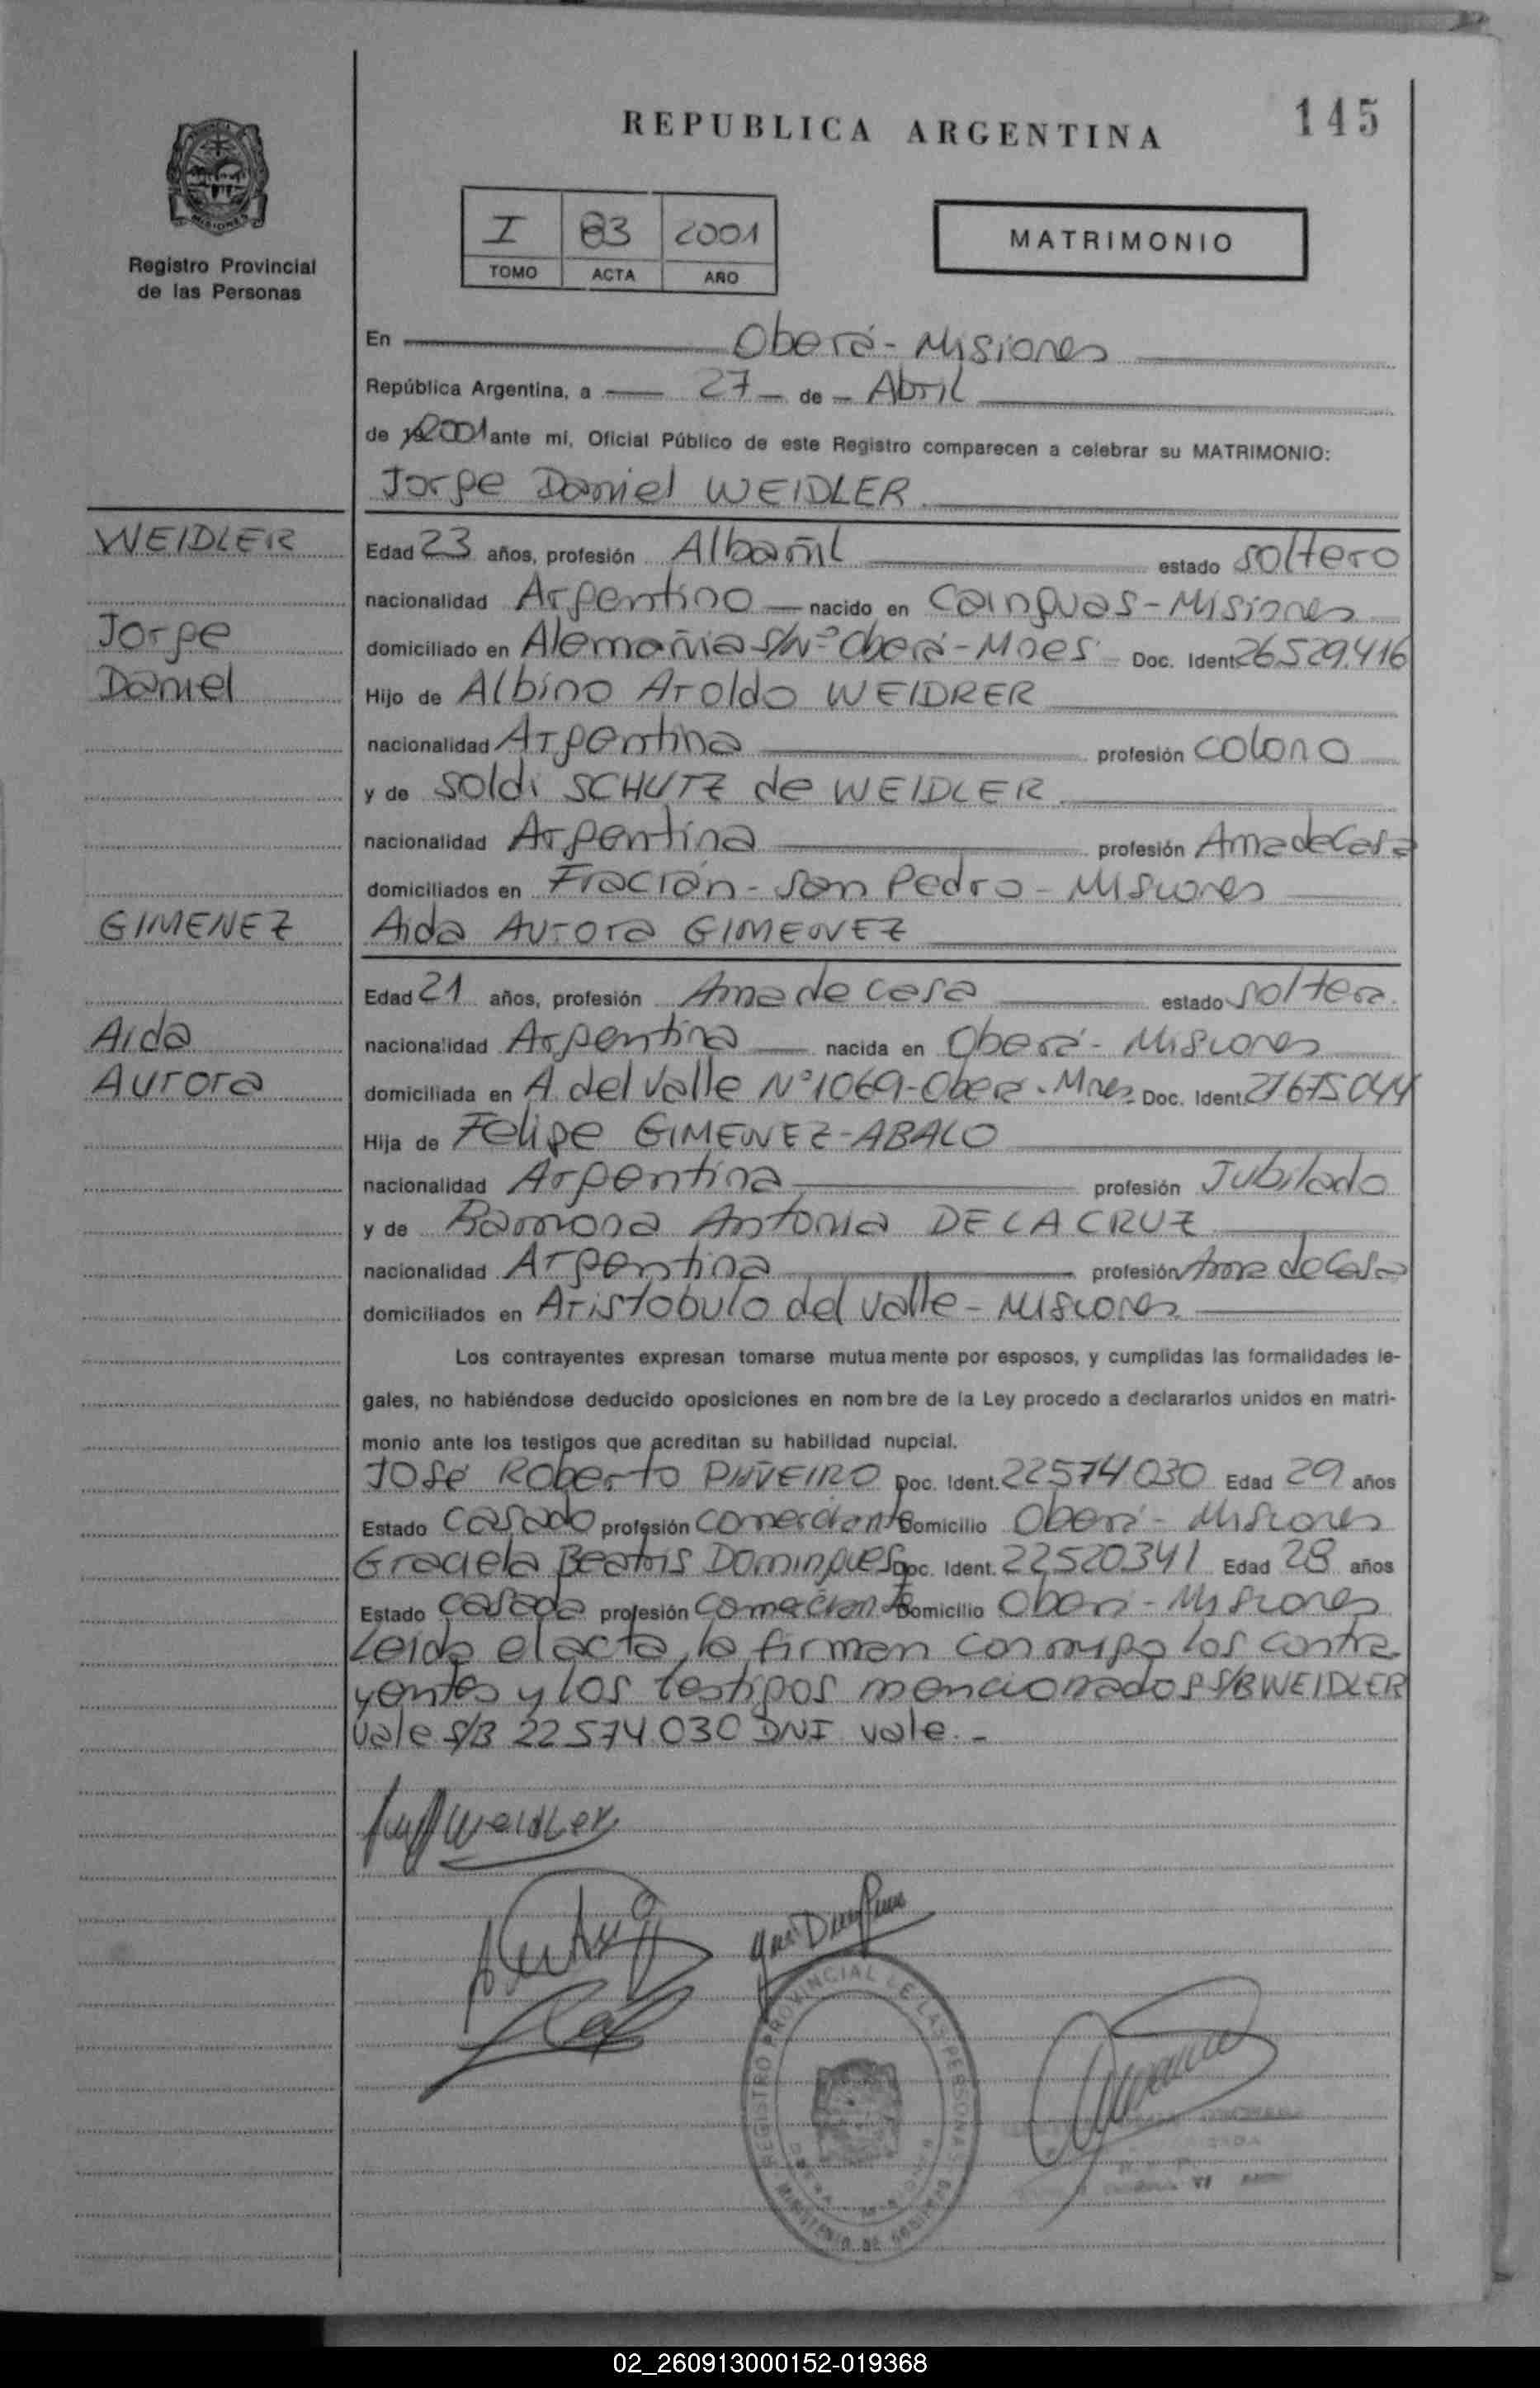 REPUBLICA ARGENTINA
145
MISIONES
Registro Provincial
de las Personas
I 83 2001
TOMO ACTA AÑO
MATRIMONIO
En Oberá - Misiones
República Argentina, a 27 de Abril
de 2001 ante mí, Oficial Público de este Registro comparecen a celebrar su MATRIMONIO:
Jorge Daniel WEIDLER
WEIDLER
Edad 23 años, profesión Albañil estado soltero
nacionalidad Argentino nacido en Cainguas - Misiones
Jorge
domiciliado en Alemañia S/Nº Oberá - Mnes Doc. Ident. 26.529.416
Daniel
Hijo de Albino Aroldo WEIDRER
nacionalidad Argentina profesión colono
y de Soldi SCHUTZ de WEIDLER
nacionalidad Argentina profesión Ama de Casa
domiciliados en Fracrán - San Pedro - Misiones
GIMENEZ
Aida Aurora GIMENEZ
Edad 21 años, profesión Ama de casa estado soltera
Aida
nacionalidad Argentina nacida en Oberá - Misiones
Aurora
domiciliada en A. del Valle Nº 1069 - Oberá - Mnes Doc. Ident. 27675044
Hija de Felipe GIMENEZ - ABALO
nacionalidad Argentina profesión Jubilado
y de Ramona Antonia DE LA CRUZ
nacionalidad Argentina profesión Ama de Casa
domiciliados en Aristobulo del valle - Misiones
Los contrayentes expresan tomarse mutuamente por esposos, y cumplidas las formalidades le-
gales, no habiéndose deducido oposiciones en nombre de la Ley procedo a declararlos unidos en matri-
monio ante los testigos que acreditan su habilidad nupcial.
José Roberto PIÑEIRO Doc. Ident. 22574030 Edad 29 años
Estado Casado profesión comerciante Domicilio Oberá - Misiones
Graciela Beatris Domingues Doc. Ident. 22520341 Edad 28 años
Estado Casada profesión Comerciante Domicilio Oberá - Misiones
Leida el acta, la firman conmigo los contra-
yentes y los testigos mencionados S/B WEIDLER
Vale S/B 22574030 DNI vale. -
Weidler
REGISTRO PROVINCIAL DE LAS PERSONAS
MINISTERIO DE GOBIERNO
02_260913000152-019368